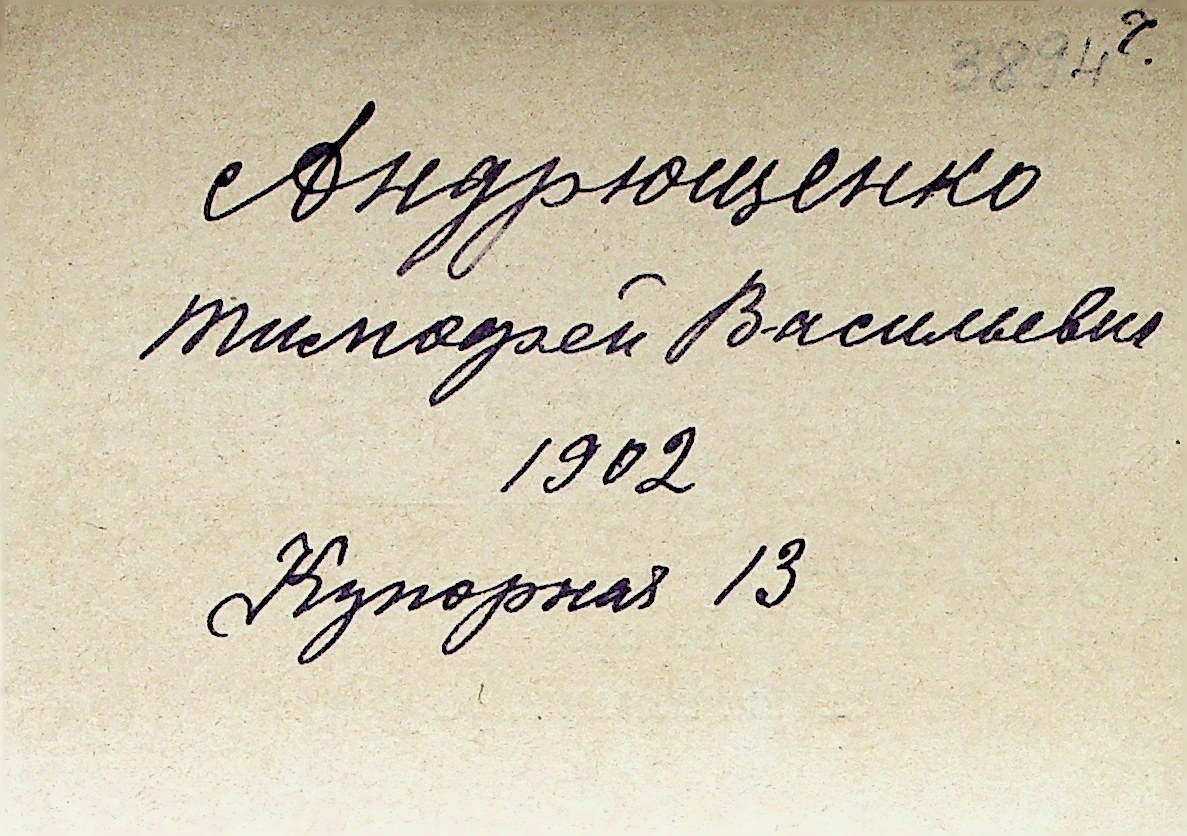 3894
Андрющенко
Тимофей Васильевич
1902
Купорная 13